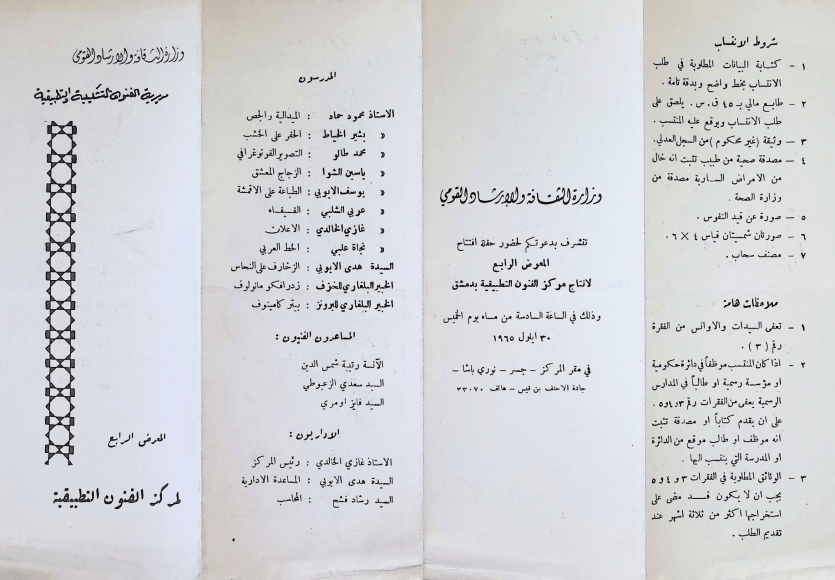 شروط الانتساب
١ - كتابة البيانات المطلوبة في طلب
الانتساب بخط واضح وبدقة تامة .
٢ - طابع مالي بـ ٤٥ ق.س. يلصق على
طلب الانتساب ويوقع عليه المنتسب .
٣ - وثيقة (غير محكوم) من السجل العدلي.
٤ - مصدقة صحية من طبيب تثبت انه خال
من الامراض السارية مصدقة من
وزارة الصحة .
٥ - صورة عن قيد النفوس .
٦ - صورتان شمسيتان قياس ٤ × ٦ .
٧ - مصنف سحاب .
ملاحظات هامة
١ - تعفى السيدات والاوانس من الفقرة
رقم ( ٣ ) .
٢ - اذا كان المنتسب موظفاً في دائرة حكومية
او مؤسسة رسمية او طالباً في المدارس
الرسمية يعفى من الفقرات رقم ٣ و ٤ و ٥ .
على ان يقدم كتاباً او مصدقة تثبت
انه موظف او طالب موقع من الدائرة
او المدرسة التي ينتسب اليها .
٣ - الوثائق المطلوبة في الفقرات ٣ و ٤ و ٥
يجب ان لا يكون قد مضى على
استخراجها اكثر من ثلاثة اشهر عند
تقديم الطلب .
وزارة الثقافة والارشاد القومي
تتشرف بدعوتكم لحضور حفلة افتتاح
المعرض الرابع
لانتاج مركز الفنون التطبيقية بدمشق
وذلك في الساعة السادسة من مساء يوم الخميس
٣٠ ايلول ١٩٦٥
في مقر المركز - جسر - نوري باشا -
جادة الاحنف بن قيس - هاتف ٣٣٠٧٠
المدرسون
الاستاذ محمود حماد : الميدالية والجص
« بشير الخياط : الحفر على الخشب
« محمد طالو : التصوير الفوتوغرافي
« ياسين الشوا : الزجاج المعشق
« يوسف الايوبي : الطباعة على الاقمشة
« عربي الشلبي : الفسيفساء
« غازي الخالدي : الاعلان
« نجاة علبي : الخط العربي
السيدة هدى الايوبي : الزخارف على النحاس
الخبير البلغاري للخزف : زدرافكو مانولوف
الخبير البلغاري للبرونز : بيتر كامينوف
المساعدون الفنيون :
الآنسة رتيبة شمس الدين
السيد سعدي الزعبوطي
السيد فايز اومري
الاداريون :
الاستاذ غازي الخالدي : رئيس المركز
السيدة هدى الايوبي : المساعدة الادارية
السيد رشاد : المحاسب
وزارة الثقافة والارشاد القومي
مديرية الفنون التشكيلية والتطبيقية
المعرض الرابع
لمركز الفنون التطبيقية